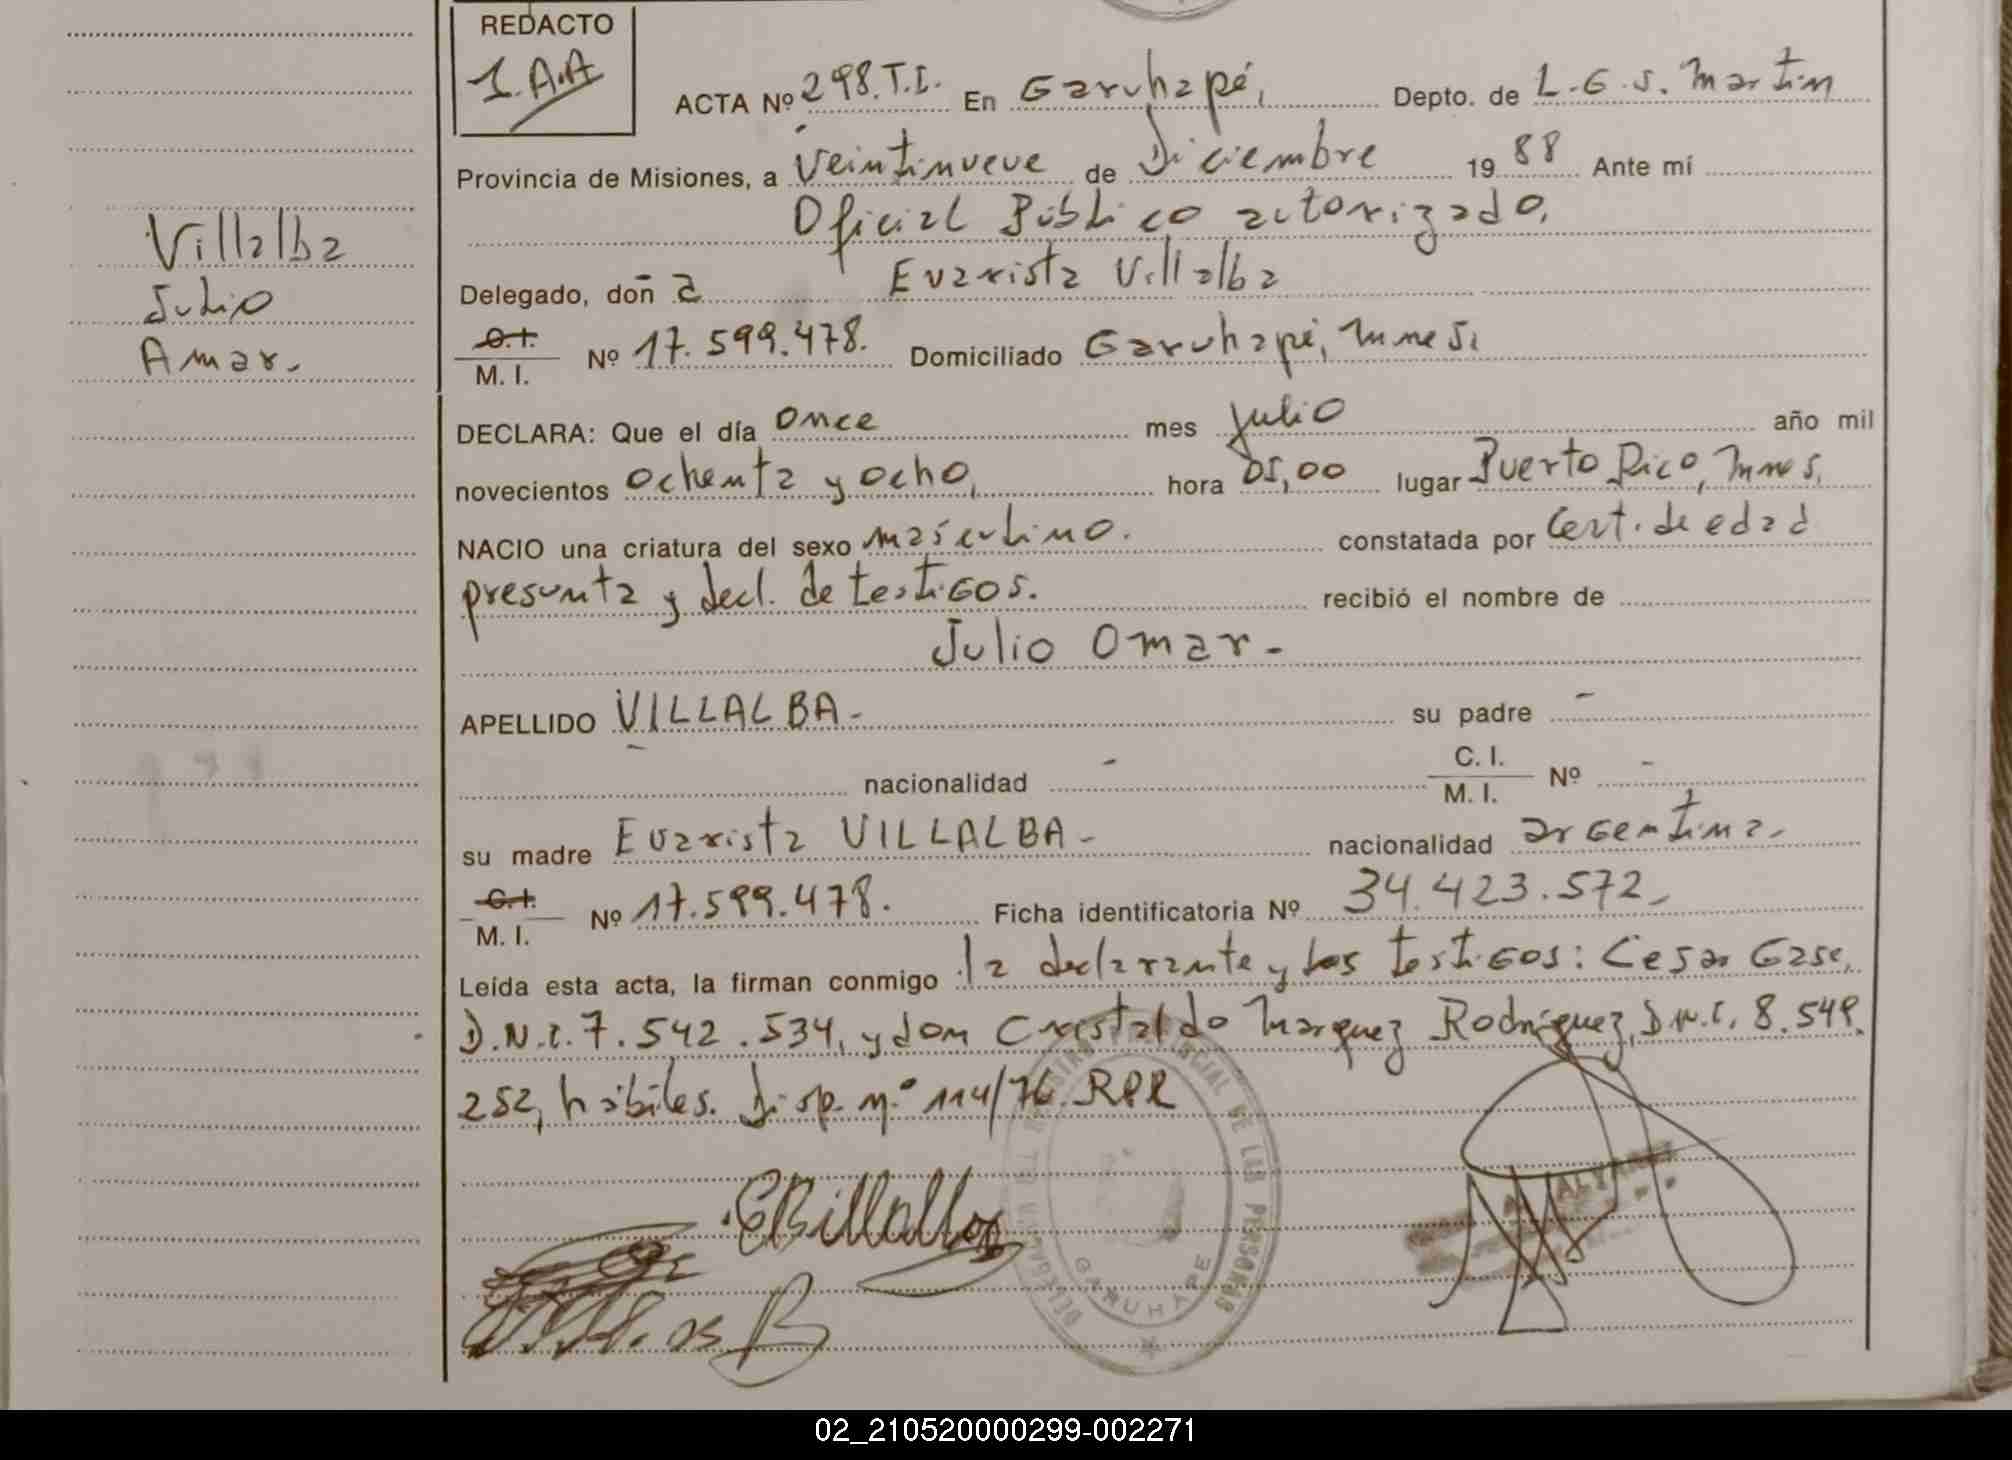 REDACTO
1.A.A
ACTA Nº 298.T.I. En Garuhapé, Depto. de L.G.S. Martin
Provincia de Misiones, a Veintinueve de Diciembre 1988 Ante mí
Oficial Público autorizado,
Delegado, doña Evarista Villalba
C.I. M. I. Nº 17.599.478. Domiciliado Garuhapé, Mnes.
Villalba
Julio
Amar.
DECLARA: Que el día once mes julio año mil
novecientos ochenta y ocho, hora 05,00 lugar Puerto Rico, Mnes,
NACIO una criatura del sexo másculino. constatada por Cert. de edad
presunta y decl. de testigos. recibió el nombre de
Julio Omar.-
APELLIDO VILLALBA- su padre -
- nacionalidad - C. I. M. I. Nº -
su madre Evarista VILLALBA- nacionalidad argentina.
C.I. M. I. Nº 17.599.478. Ficha identificatoria Nº 34.423.572,
Leída esta acta, la firman conmigo la declarante y los testigos: Cesar Gase,
D.N.I. 7.542.534, y don Cristaldo Marquez Rodriguez, D.N.I. 8.549.
252, hábiles. Disp. nº 114/76. RPR
EBillalba
PROVINCIAL DE LAS PERSONAS
GARUHAPE
02_210520000299-002271